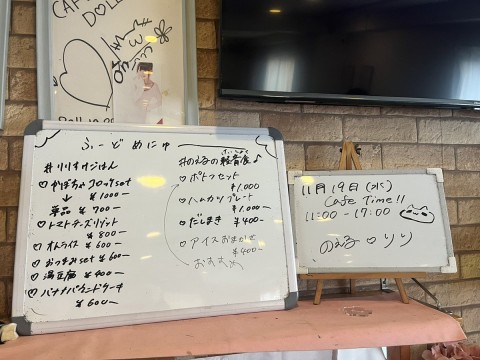 CAF
DOLL
ふーどめにゅー
#リリオカごはん
♡かぼちゃコロッケset
→ ¥1000ー
単品 ¥700ー
♡トマトチーズリゾット
¥800ー
♡オムライス ¥600ー
♡おつまみset ¥600ー
♡湯豆腐 ¥400ー
♡バナナパウンドケーキ
¥600ー
#のえるの軽音食♪
♡ポトフセット
¥1,000
♡ハムカツプレート
¥1,000ー
♡だしまき ¥400ー
♡アイスおまかせ
¥400ー
おすすめ
11月19日(水)
Cafe Time!!
11:00-17:00
のえる♡りり